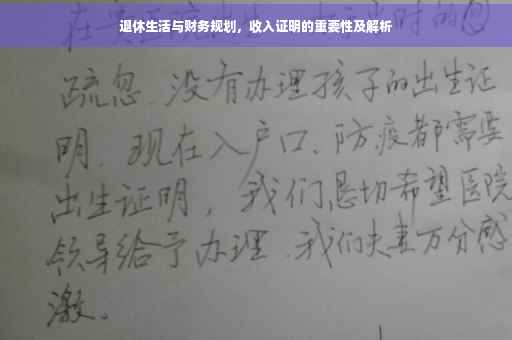 退休生活与财务规划，收入证明的重要性及解析
疏忽.没有办理孩子的出生证
明.现在入户口、防疫都需要
出生证明，我们恳切希望医院
领导给予办理.我们夫妻万分感
激。